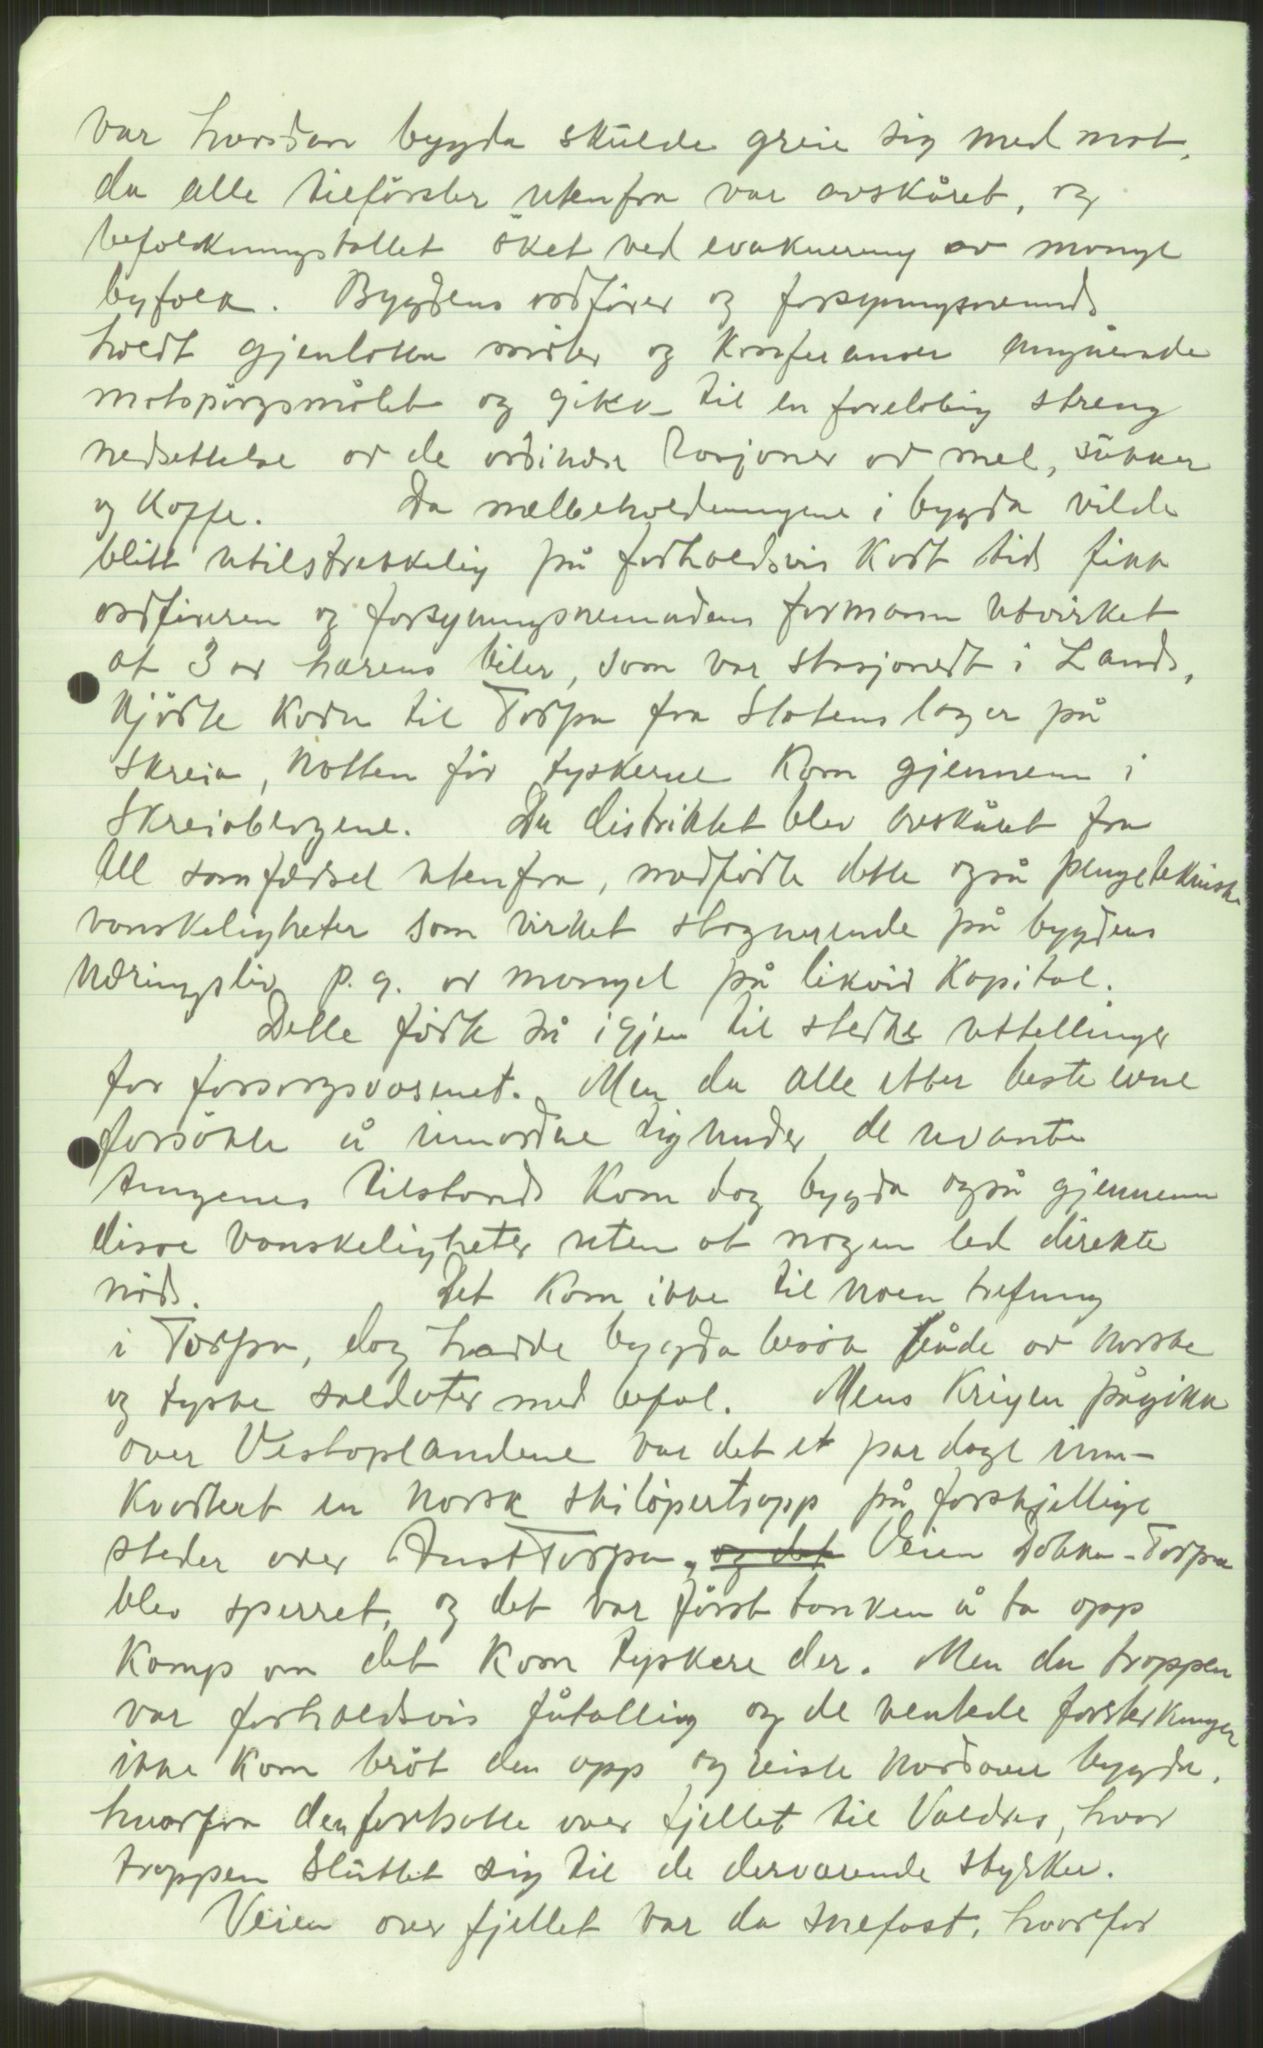 var hvordan bygda skulde greie sig med mat,
da alle tilførsler utenfra var avskåret, og
befolkningstallet øket ved evakuering av mange
byfolk. Bygdens ordfører og forsyningsnemnd
holdt gjentatte møter og konferanser angående
matspørgsmålet og gikk til en foreløbig streng
nedsettelse av de ordinære rasjoner av mel, sukker
og kaffe. Da melbeholdningene i bygda vilde
blitt utilstrekkelig på forholdsvis kort tid fikk
ordføreren og forsyningsnemndens formann utvirket
at 3 av hærens biler, som var stasjonert i Land,
kjørte korn til Torpa fra Statens lager på
Skreia, natten før tyskerne kom gjennem i
Skreiabergene. Da distriktet blev avskåret fra
all samferdsel utenfra, medførte dette også pengetekniske
vanskeligheter som virket stagnerende på bygdens
næringsliv p. g. av mangel på likvid kapital.
Dette førte så igjen til sterke utstellinger
for forsorgsvæsenet. Men da alle etter beste evne
forsøkte å innordne sig under de uvante
tingenes tilstand kom dog bygda også gjennem
disse vanskeligheter uten at nogen led direkte
nød. Det kom ikke til noen trefning
i Torpa, dog hadde bygda besøk både av norske
og tyske soldater med befal. Mens krigen pågikk
over Vestoplandene var det et par dage inn-
kvartert en norsk skiløpertropp på forskjellige
steder over Aust Torpa, og det Veien Dokka-Torpa
blev sperret, og det var først tanken å ta opp
kamp om det kom tyskere der. Men da troppen
var forholdsvis fåtallig og de ventede forsterkninger
ikke kom brøt den opp og reiste nordover bygda,
hvorfra den fortsatte over fjellet til Valdres, hvor
troppen sluttet sig til de derværende styrker.
Veien over fjellet var da snefast, hvorfor